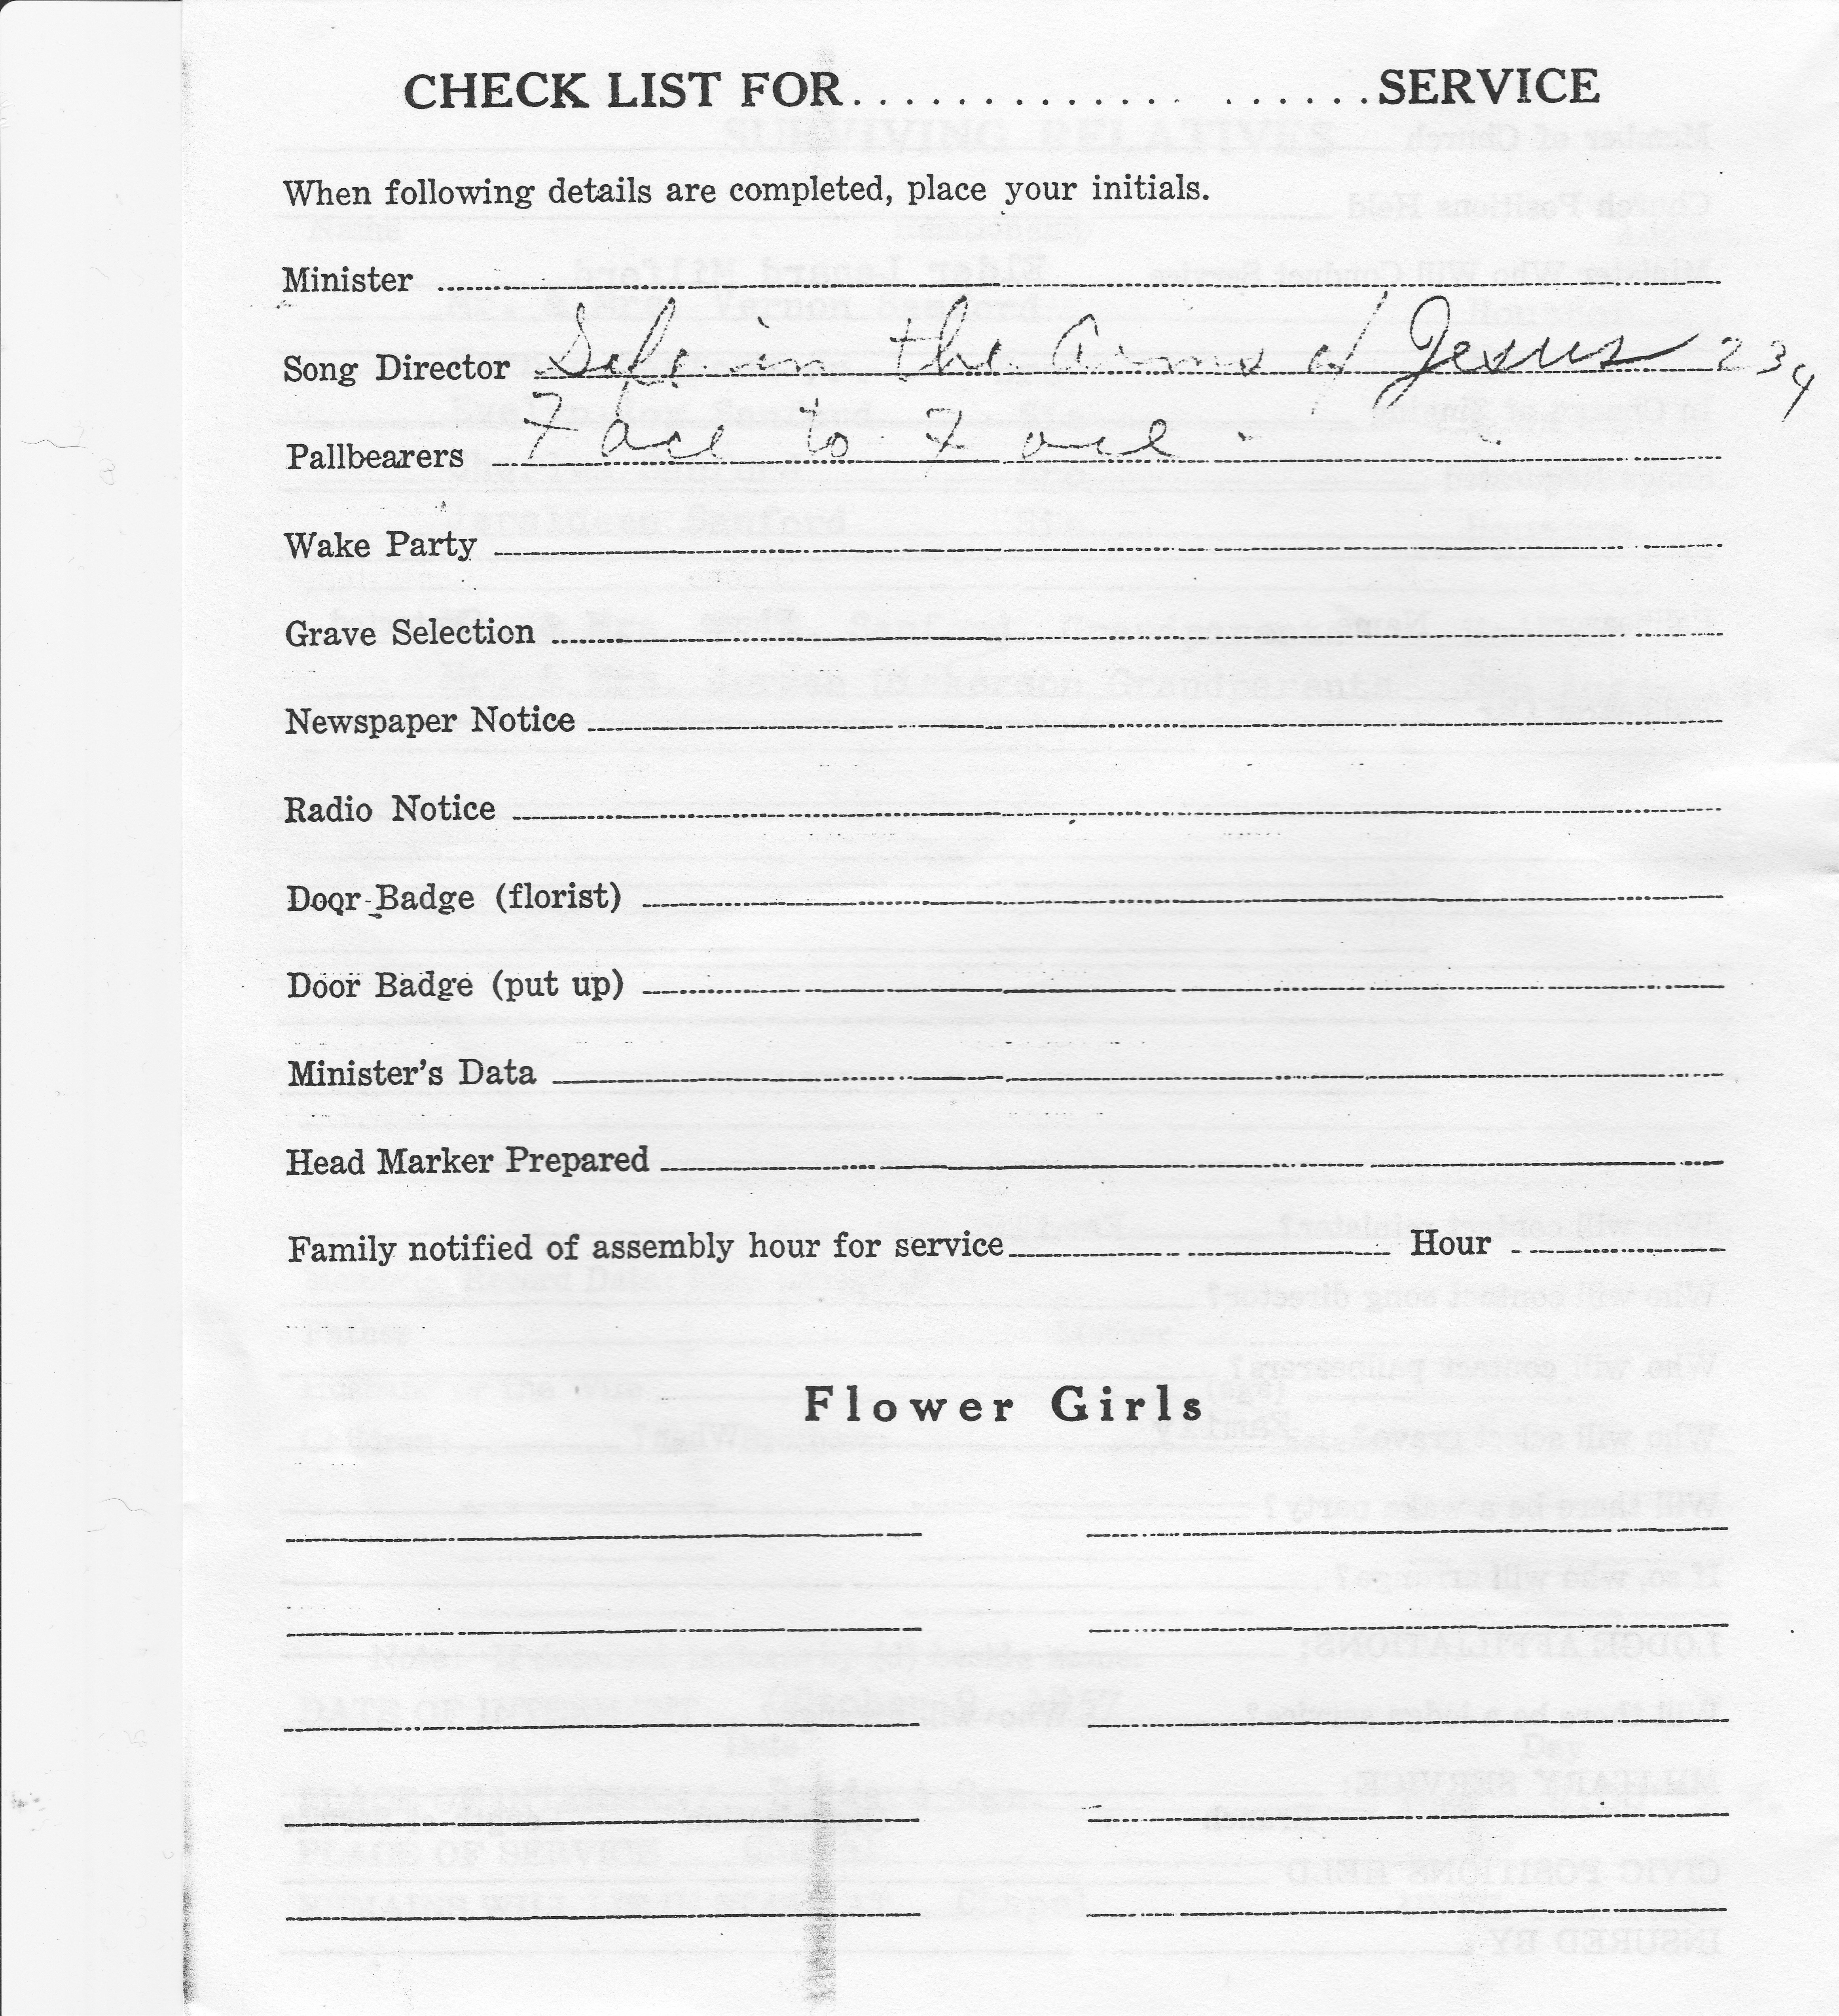 CHECK LIST FOR.................... SERVICE
When following details are completed, place your initials.
Minister
Song Director Safe in the Arms of Jesus 234
Pallbearers Face to Face
Wake Party
Grave Selection
Newspaper Notice
Radio Notice
Door Badge (florist)
Door Badge (put up)
Minister's Data
Head Marker Prepared
Family notified of assembly hour for service Hour
Flower Girls